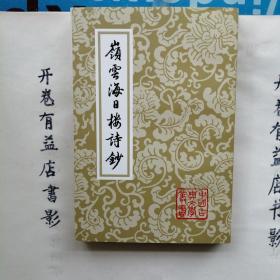 嶺雲海日樓詩鈔
中國古典文學叢書
开卷有益店書影
开卷有益店書影